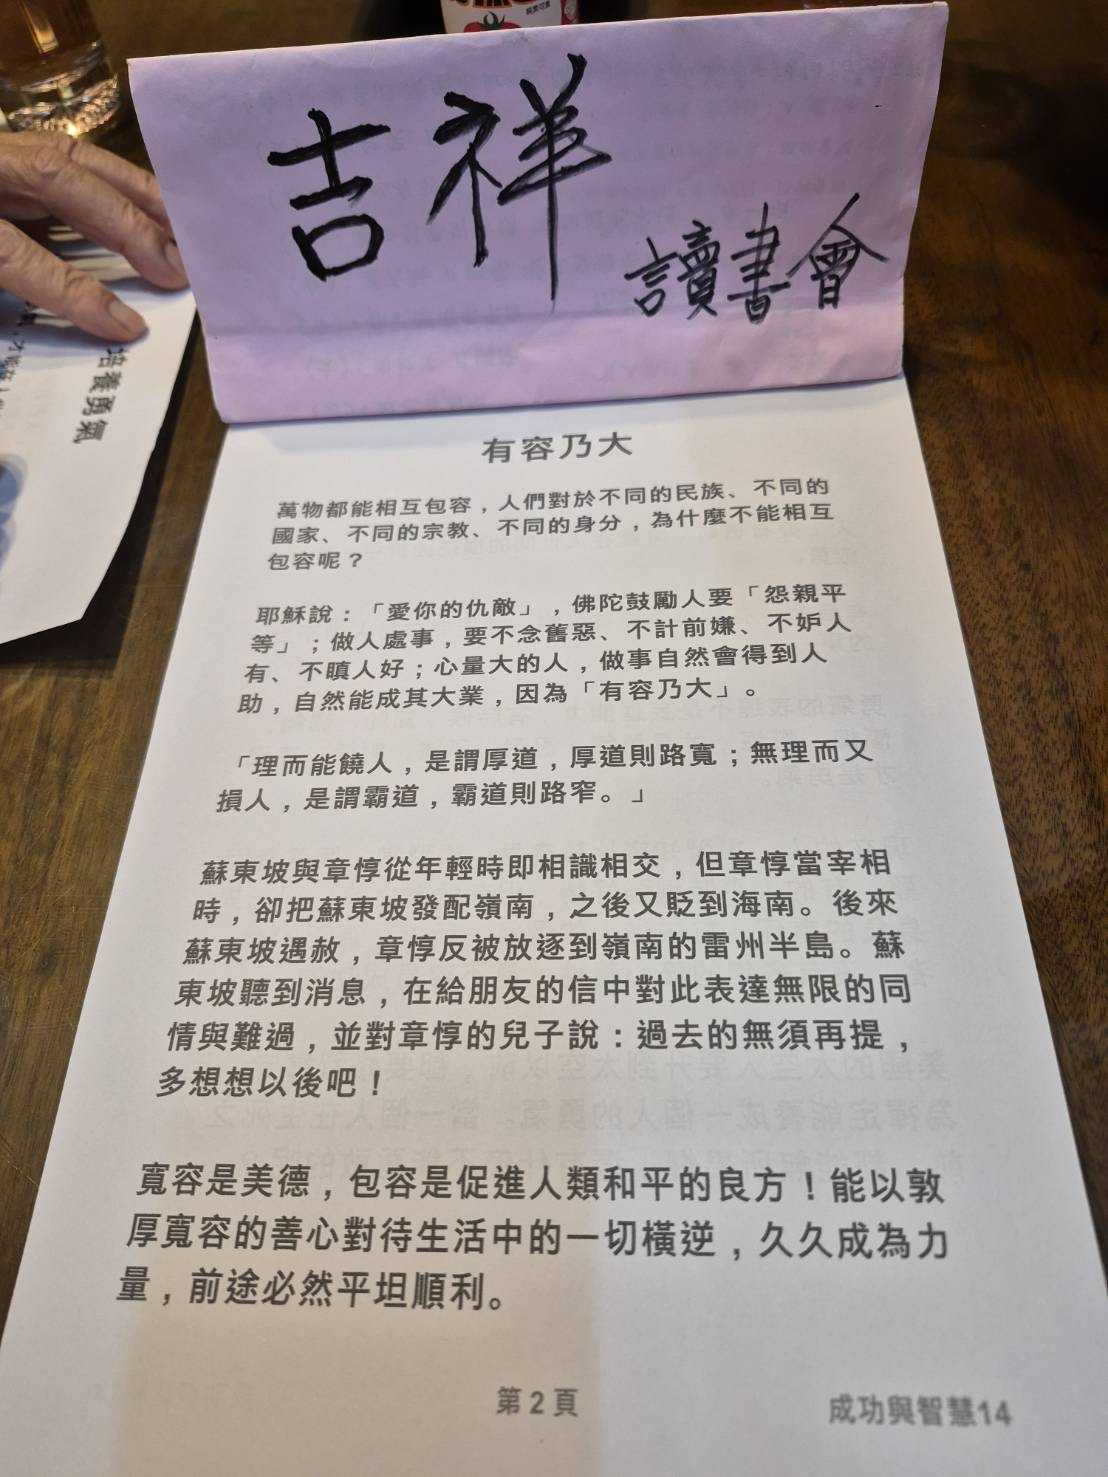 吉祥
讀書會
培養勇氣
有容乃大
萬物都能相互包容，人們對於不同的民族、不同的
國家、不同的宗教、不同的身分，為什麼不能相互
包容呢？
耶穌說：「愛你的仇敵」，佛陀鼓勵人要「怨親平
等」；做人處事，要不念舊惡、不計前嫌、不妒人
有、不瞋人好；心量大的人，做事自然會得到人
助，自然能成其大業，因為「有容乃大」。
「理而能饒人，是謂厚道，厚道則路寬；無理而又
損人，是謂霸道，霸道則路窄。」
蘇東坡與章惇從年輕時即相識相交，但章惇當宰相
時，卻把蘇東坡發配嶺南，之後又貶到海南。後來
蘇東坡遇赦，章惇反被放逐到嶺南的雷州半島。蘇
東坡聽到消息，在給朋友的信中對此表達無限的同
情與難過，並對章惇的兒子說：過去的無須再提，
多想想以後吧！
寬容是美德，包容是促進人類和平的良方！能以敦
厚寬容的善心對待生活中的一切橫逆，久久成為力
量，前途必然平坦順利。
第2頁
成功與智慧14